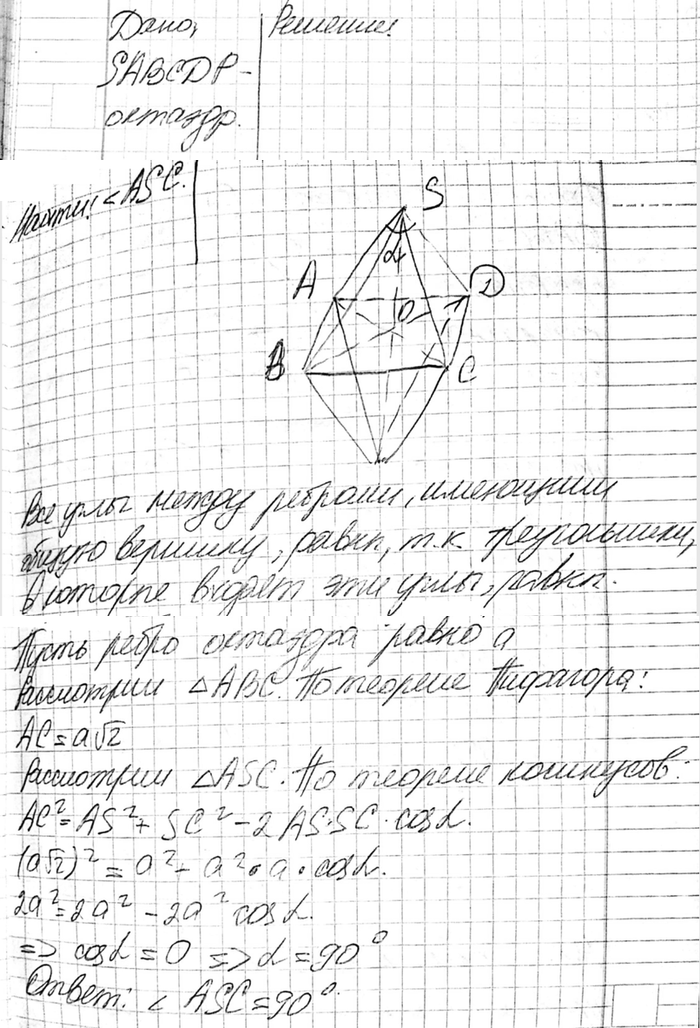 Дано, Решение!
SABCDP-
октаэдр.
Найти! ∠ASC.
S
α
A
D
O
B
C
Все углы между рёбрами, имеющими
общую вершину, равны, т.к. треугольники,
в которые входят эти углы, равны.
Пусть ребро октаэдра равно a
Рассмотрим △ABC. По теореме Пифагора:
AC=a√2
Рассмотрим △ASC. По теореме косинусов:
AC²=AS²+SC²-2AS·SC·cosα.
(a√2)²=a²-a²·a·cosα.
2a²=2a²-2a²cosα.
=> cosα=0 => α=90°
Ответ: ∠ASC=90°.